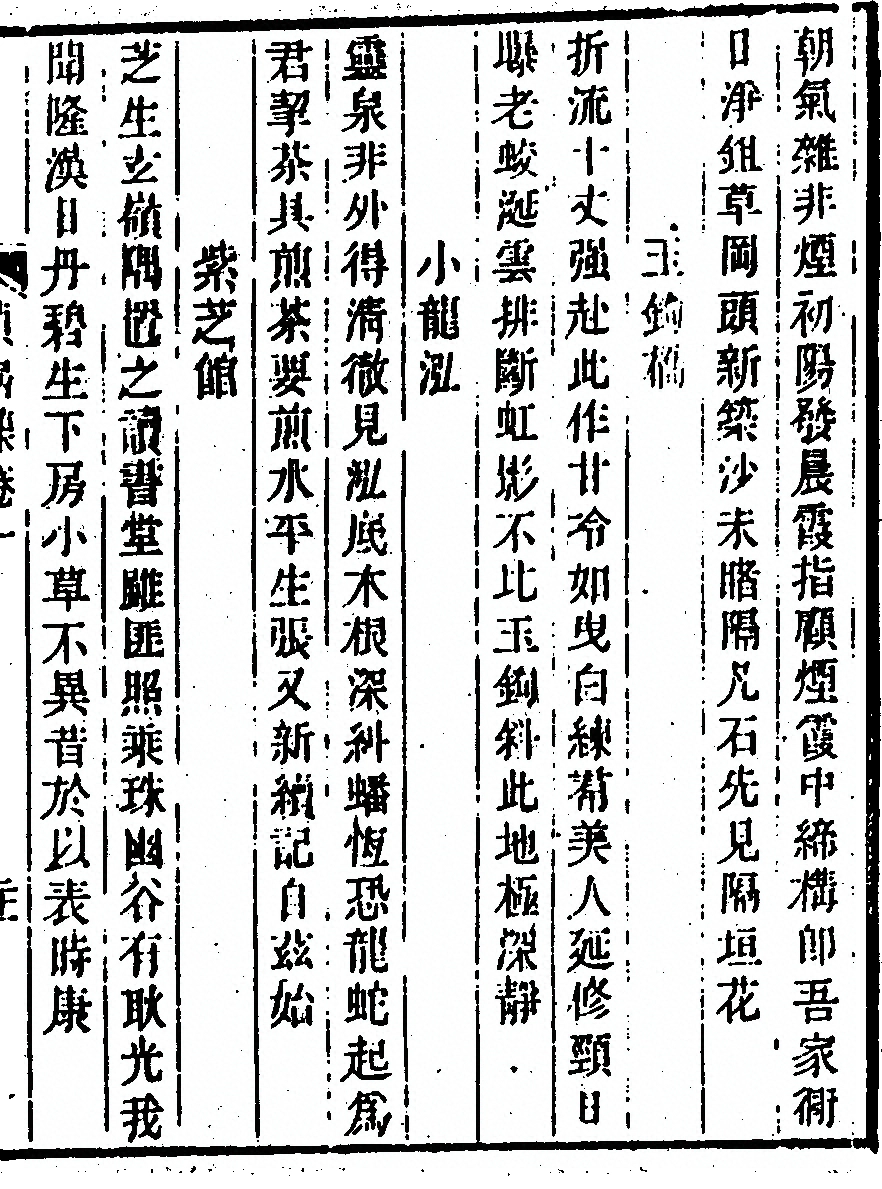 朝氣雜非煙初陽發晨霞指顧煙霞中締構郎吾家衙
日淨鉏草岡頭新築沙未瞎隔凡石先見隔垣花
玉鉤橋
折流十丈强赴此作甘冷如曳白練帬美人延修頸日
聯老蛟涎雲排斷虹影不比玉鉤斜此地極深靜
小龍泓
靈泉非外得清徹見泓底木根深糾蟠恆恐龍蛇起爲
君挈茶具煎茶要煎水平生張又新續記自兹始
紫芝館
芝生玄嶺隅揠之讀書堂雖匪照乘珠幽谷有耿光我
聞隆漢日丹碧生下房小草不異昔於以表時康
貞居集卷一